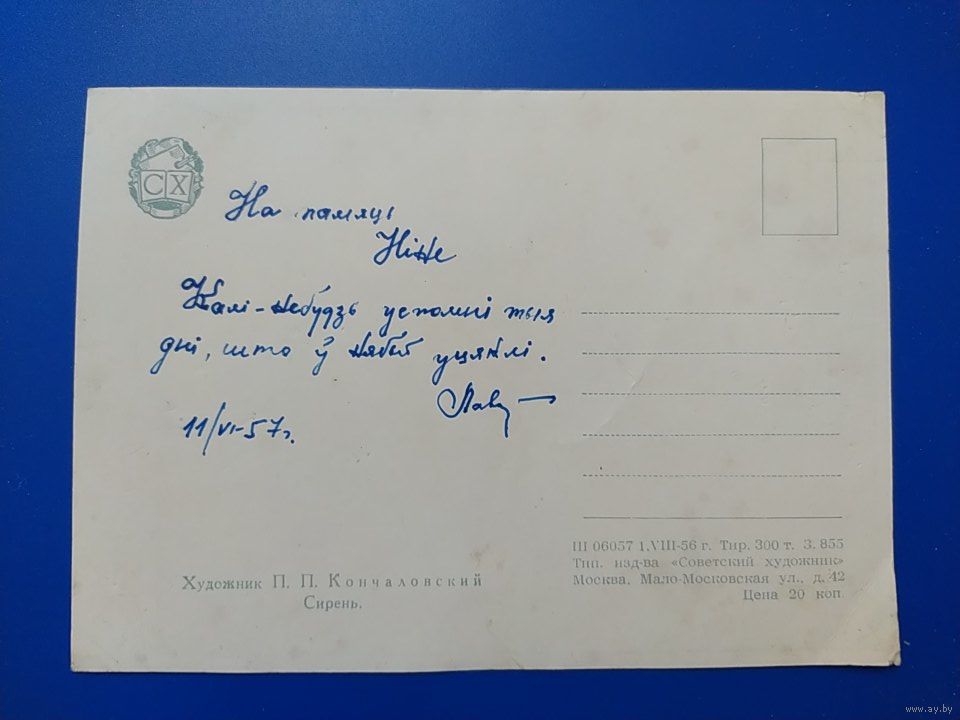 СХ
На памяць
Ніне
Калі-небудзь успомні тыя
дні, што ў нябыт уцяклі.
11/VI-57г.
Художник П. П. Кончаловский
Сирень.
Ш 06057 1.VIII-56 г. Тир. 300 т. З. 855
Тип. изд-ва «Советский художник»
Москва, Мало-Московская ул., д. 42
Цена 20 коп.
www.ay.by